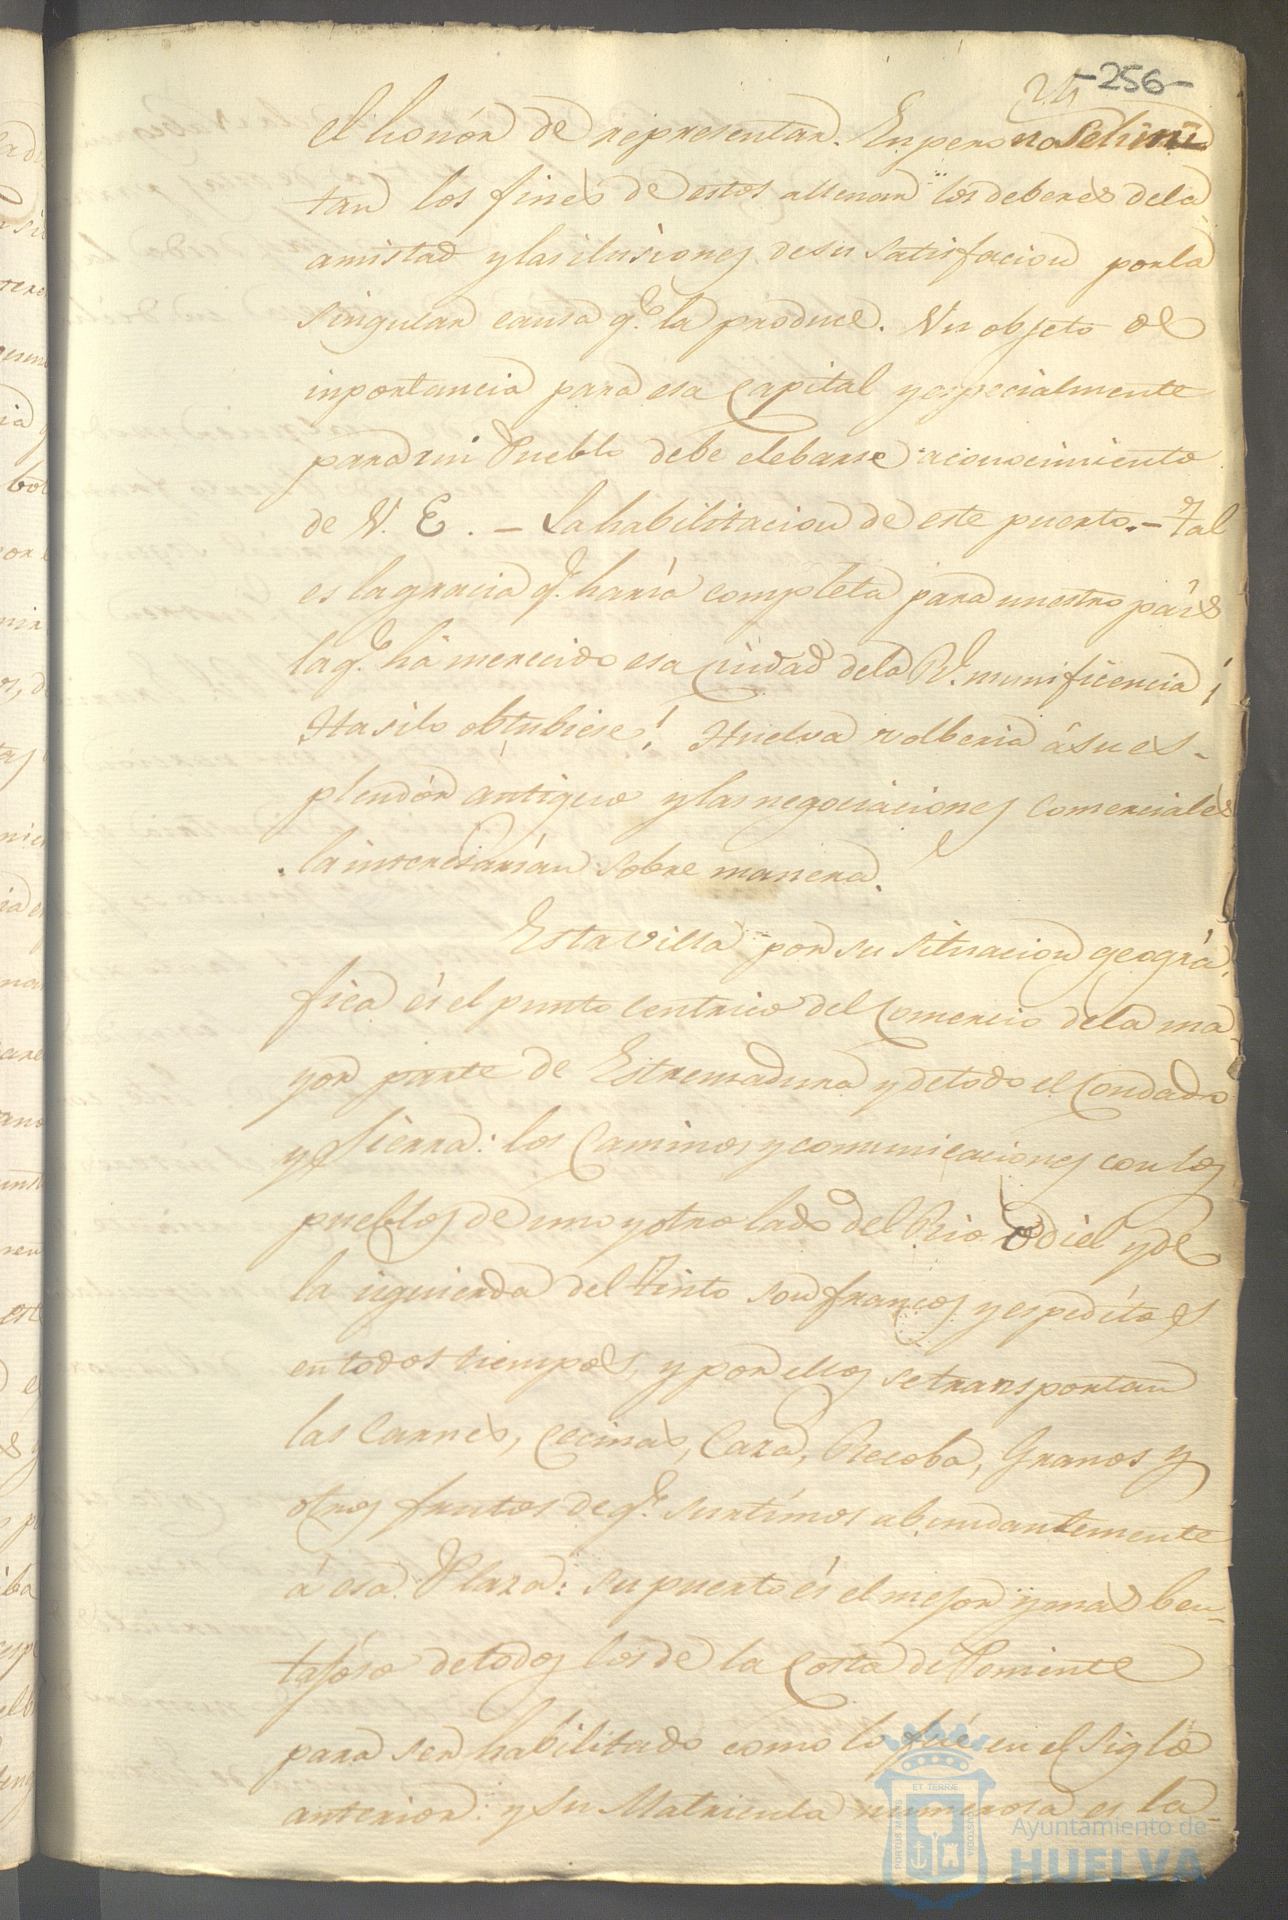 -256-
el honór de representar. Enpero no se limi
tan los fines de estos a llenar los deberes de la
amistad y las ilusiones de su satisfacion por la
singular causa q.e la produce. Un objeto de
inportancia para esa Capital y especialmente
para mi Pueblo debe elebarse a conocimiento
de V. E. - La habilitacion de este puerto. - Tal
es la gracia q.e haría completa para nuestro país
la q.e há merecido esa Ciudad de la R.l munificencia ¡
Ha si lo obtubiese! Huelva volberia á su es-
plendór antiguo y las negociaciones Comerciales
la interesarían sobre manera.
Esta villa por su situacion geográ-
fica és el punto centrico del Comercio de la ma
yor parte de Estremadura y de todo el Condado
y Sierra: los Caminos y comunicaciones con los
pueblos de uno y otro lado del Rio Odiel y de
la izquierda del Tinto son francos y espeditos
en todos tiempos, y por ellos se transportan
las Carnes, Cecinas, Caza, Recoba, Granos y
otros frutos de q.e surtímos abundantemente
á esa Plaza: su puerto és el mejor y mas ben-
tajoso de todos los de la Costa de Poniente
para ser habilitado como lo fué en el Siglo
anterior: y su Matricula numerosa es la
ET TERRÆ
PORTUS MARIS
CUSTODIA
Ayuntamiento de
HUELVA